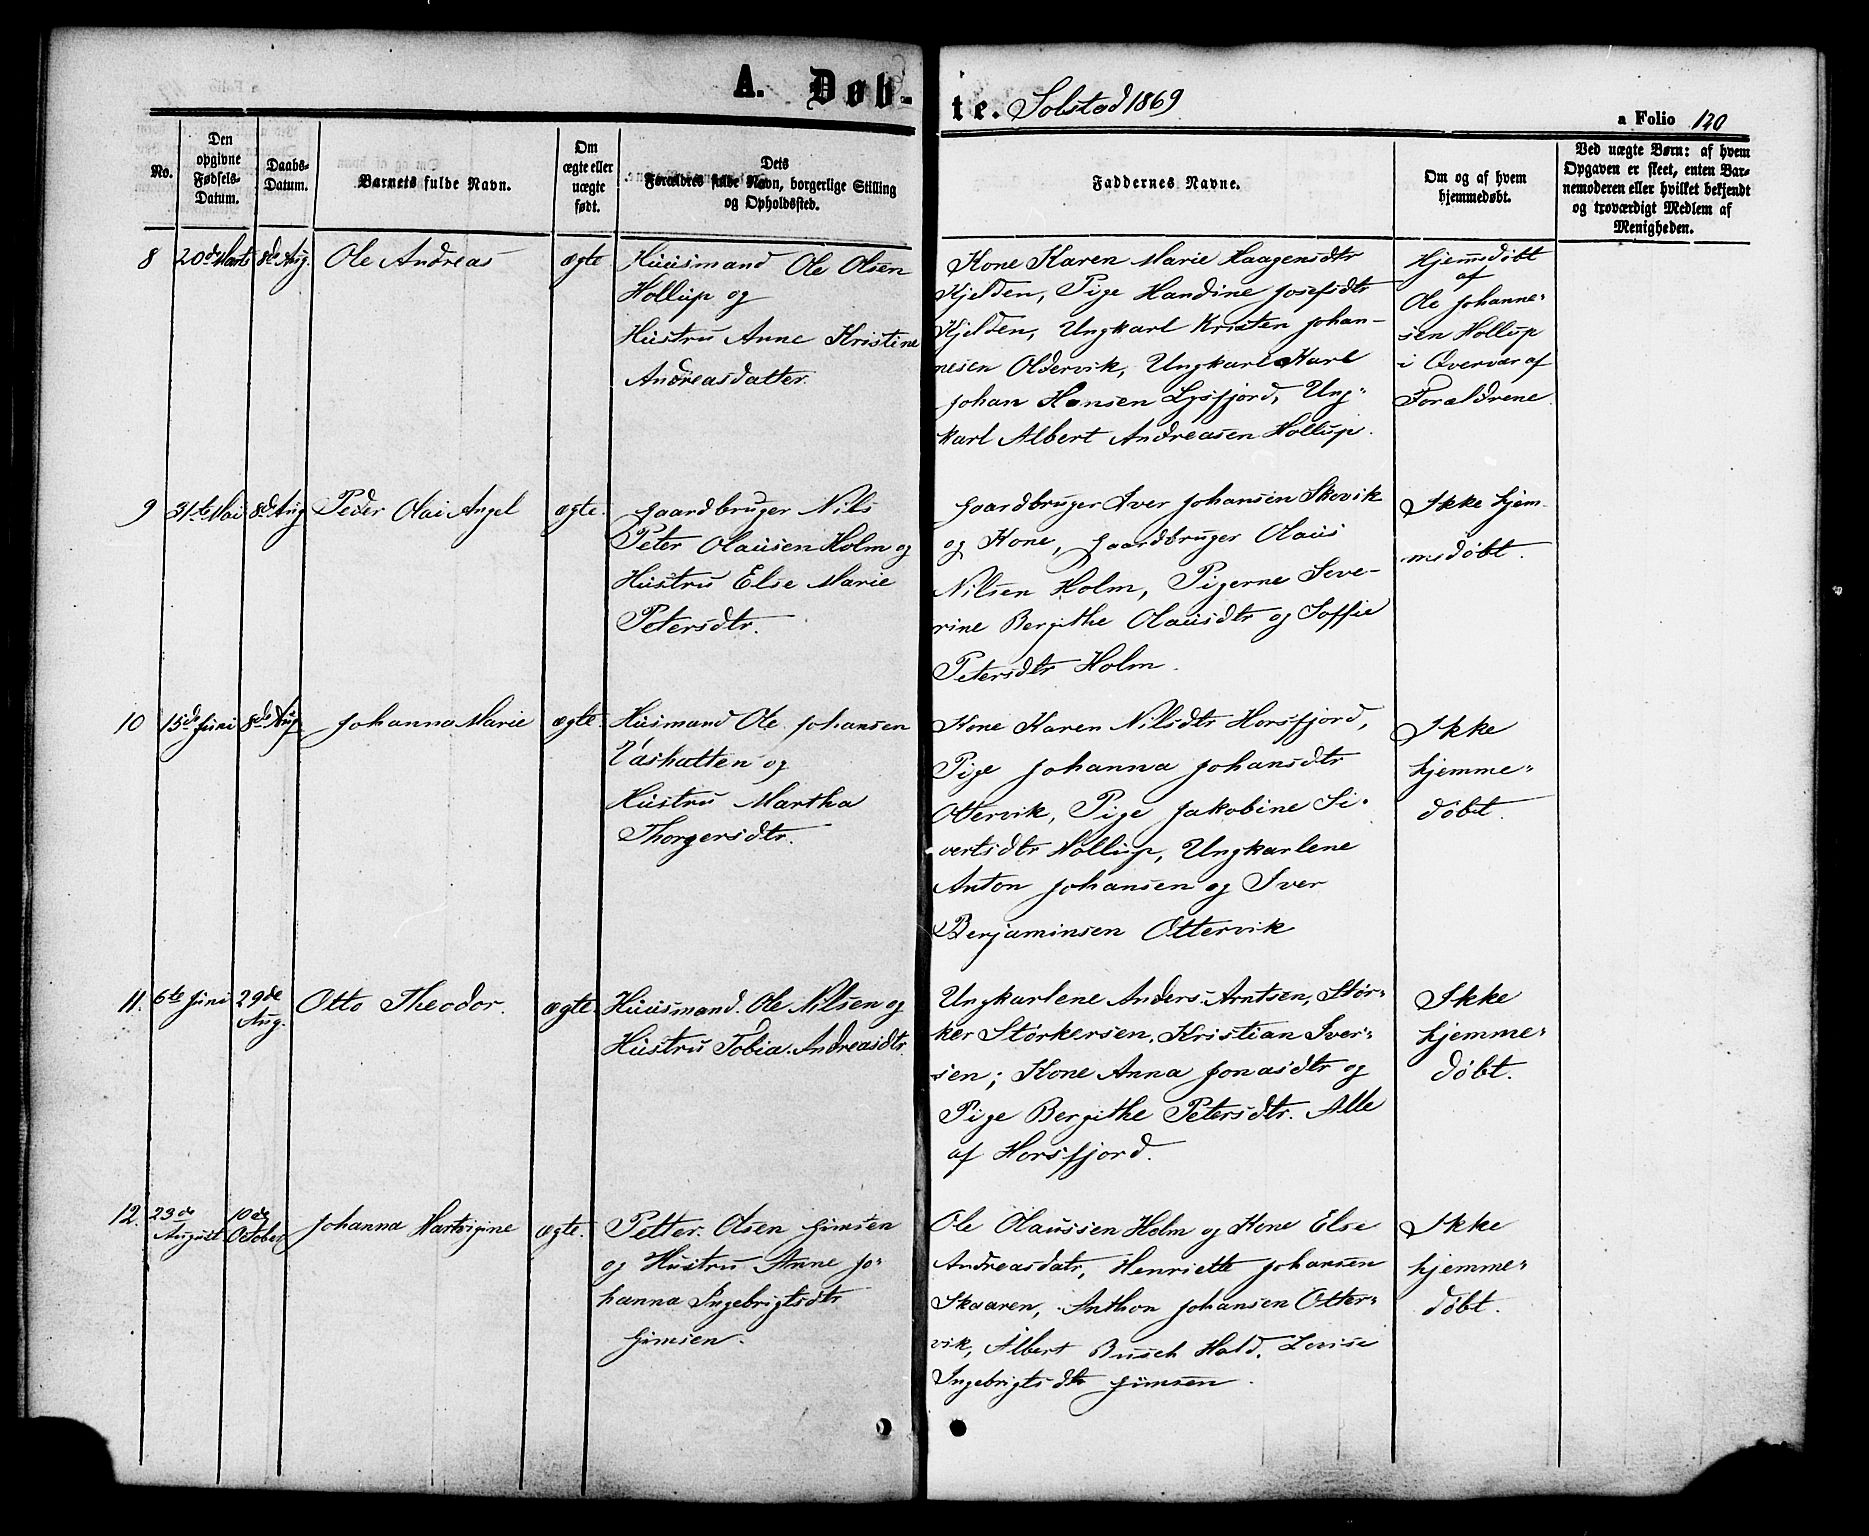 A. Døb-
te. Solstad 1869
a Folio 120
No.
Den
opgivne
Fødsels-
Datum.
Daabs-
Datum.
Barnets fulde Navn.
Om
ægte eller
uægte
født.
Dets
Forældres fulde Navn, borgerlige Stilling
og Opholdssted.
Faddernes Navne.
Om og af hvem
hjemmedøbt.
Ved uægte Børn: af hvem
Opgaven er skeet, enten Bar-
nemoderen eller hvilket bekjendt
og troværdigt Medlem af
Menigheden.
8
20de Marts
8de Aug.
Ole Andreas
ægte
Huusmand Ole Olsen
Hollup og
Hustru Anne Kristine
Andreasdatter.
Kone Karen Marie Haagensdtr
Kjelden, Pige Handine Josefsdtr
Kjelden, Ungkarl Kristen Johan-
nesen Oldervik, Ungkarl Karl
Johan Hansen Lysfjord, Ung-
karl Albert Andreasen Hollup.
Hjemsdøbt
af
Ole Johanne-
sen Hollup
i Overvær af
Forældrene
9
31te Mai
8de Aug
Peder Olai Angel
ægte.
Gaardbruger Nils
Peter Olausen Holm og
Hustru Else Marie
Petersdtr.
Gaardbruger Iver Johansen Skovik
og Kone, Gaardbruger Olaus
Nilsen Holm, Pigerne Seve-
rine Bergithe Olausdtr og Soffie
Petersdtr Holm.
Ikke hjem-
msdøbt.
10
15de Juni
8de Aug
Johanna Marie
ægte.
Husmand Ole Johansen
Vashatten og
Hustru Martha
Thorgersdtr.
Kone Karen Nilsdtr Horsfjord,
Pige Johanna Johansdtr
Ottervik, Pige Jakobine Si-
vertsdtr Hollup, Ungkarlene
Anton Johansen og Iver
Benjaminsen Ottervik
Ikke
hjemme-
døbt.
11.
6te Juni
29de
Aug.
Otto Theodor.
ægte.
Huusmand. Ole Nilsen og
Hustru Tobia. Andreasdtr.
Ungkarlene Anders Arntsen, Stør-
ker Størkersen, Kristian Iver-
sen; Kone Anna Jonasdtr og
Pige Bergithe Petersdtr. Alle
af Horsfjord.
Ikke
hjemme-
døbt.
12.
23de
August
10de
October
Johanna Hartvigine
ægte.
Petter. Olsen Gimsen
og Hustru Anne Jo-
hanna Ingebrigtsdtr
Gimsen.
Ole Olaussen Holm og Kone Else
Andreasdatr, Henriette Johansen
Skaaren, Anthon Johansen Otter-
vik, Albert Busch Hald. Lovise
Ingebrigtsdtr Gimsen.
Ikke
hjemme-
døbt.